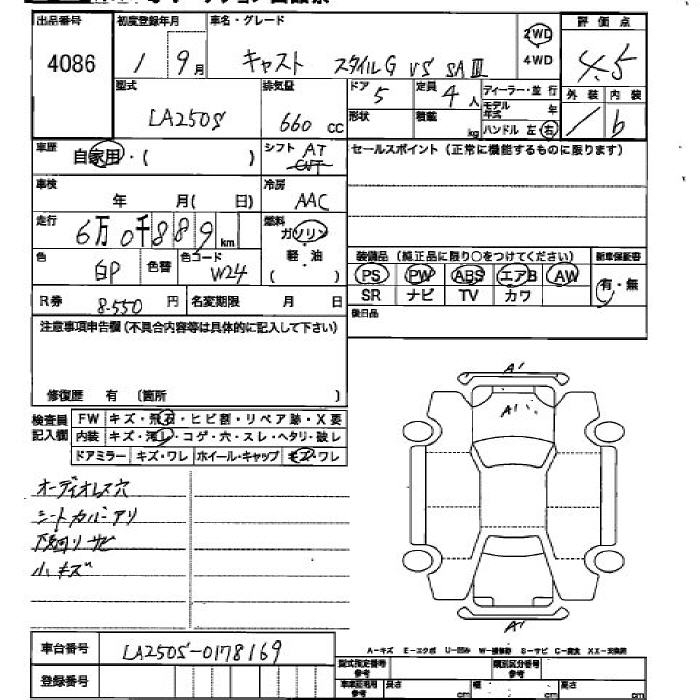 出品番号 初度登録年月 車名・グレード 評価点
4086 1 9月 キャスト スタイルG VS SAⅢ 2WD 4WD 4.5
型式 排気量 ドア 定員 ディーラー・並行 外装 内装
LA250S 660 cc 5 4人 モデル年式 年 / b
形状 積載 kg ハンドル 左・右
車歴 自家用・( ) シフト AT CVT セールスポイント(正常に機能するものに限ります)
車検 年 月( 日) 冷房 AAC
走行 6万0千889km 燃料 ガソリン 軽・油 ( )
装備品(純正品に限り○をつけてください) 新車保証書
色 白P 色替 色コード W24 PS PW ABS エアB AW 有・無
SR ナビ TV カワ
R券 8,550円 名変期限 月 日 後日品
注意事項申告欄(不具合内容等は具体的に記入して下さい)
修復歴 有 (箇所 )
検査員記入欄 FW キズ・飛石・ヒビ割・リペア跡・X要
内装 キズ・汚レ・コゲ・穴・スレ・ヘタリ・破レ
ドアミラー キズ・ワレ ホイール・キャップ キズ・ワレ
A'
A'
オーディオレス穴
シートカバーアリ
下廻リサビ
小キズ
A'
A-キズ E-エクボ U-凹み W-補修跡 S-サビ C-腐食 XX-交換済
車台番号 LA250S-0178169
型式指定番号 参考 類別区分番号 参考
登録番号 車車証明用 参考 長さ cm 幅 cm 高さ cm